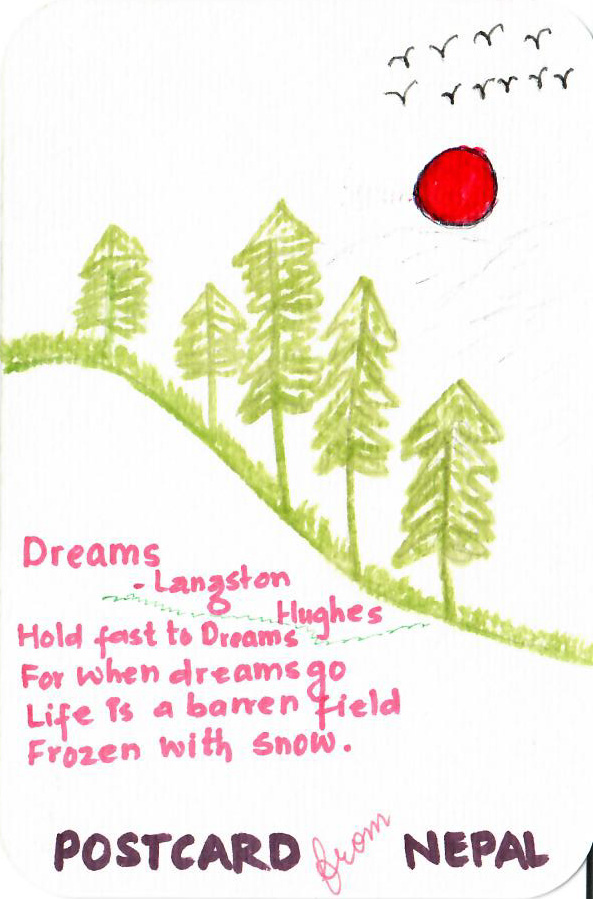 Dreams
- Langston
Hughes
Hold fast to Dreams
For when dreams go
Life is a barren field
Frozen with snow.
POSTCARD from NEPAL